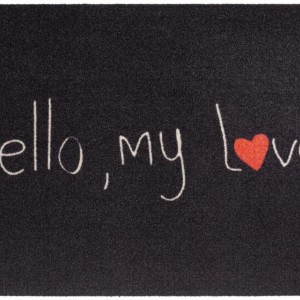 ello, my lov